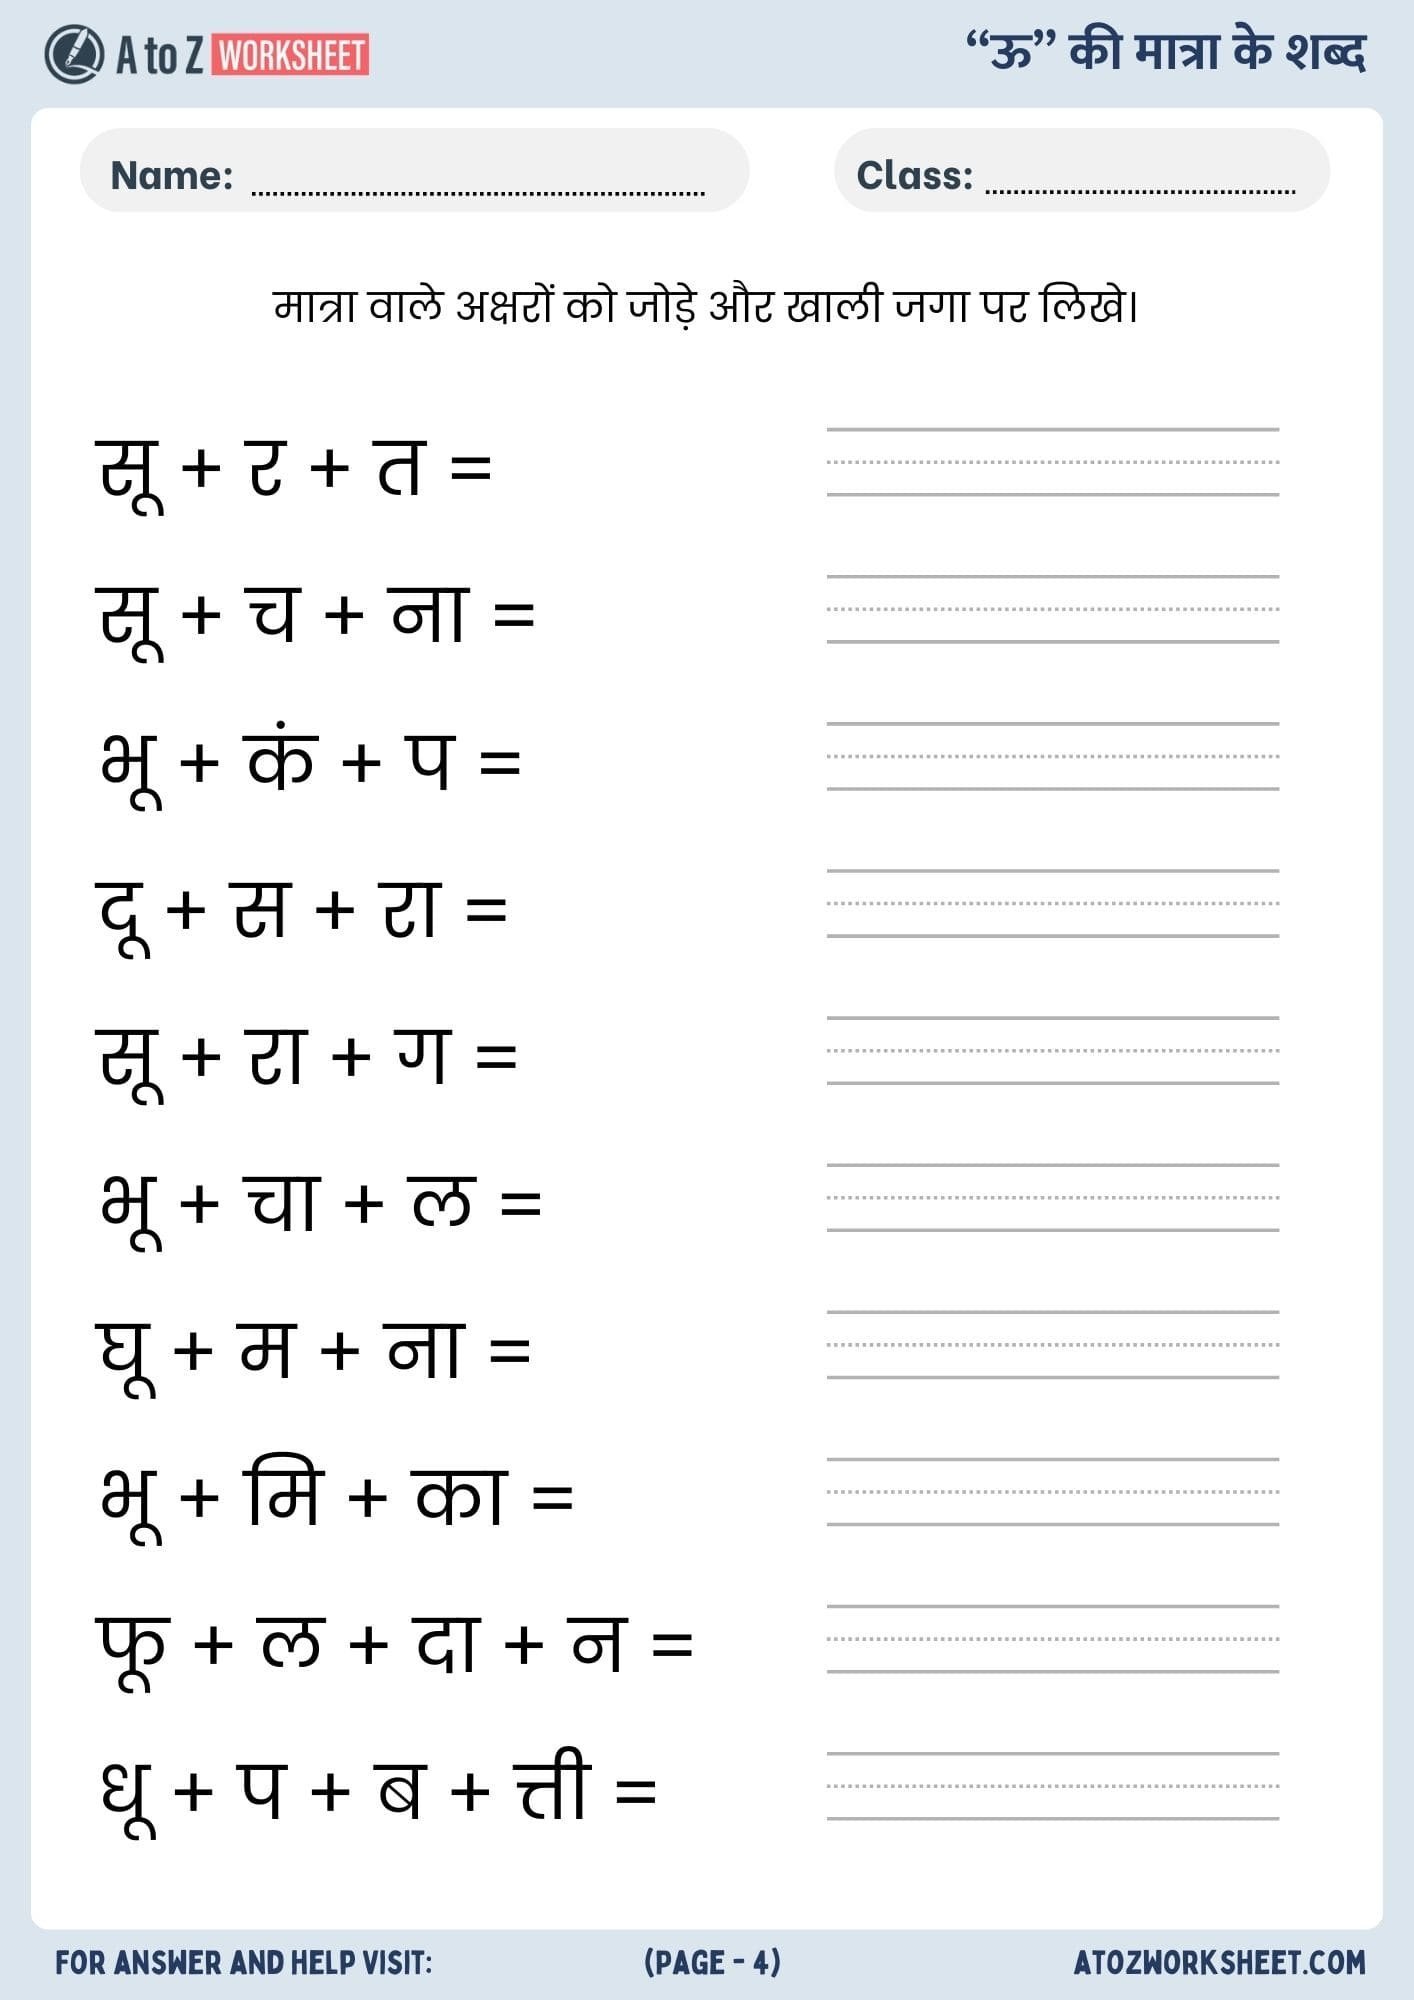 A to Z WORKSHEET
“ऊ” की मात्रा के शब्द
Name:
Class:
मात्रा वाले अक्षरों को जोड़े और खाली जगा पर लिखे।
सू + र + त =
सू + च + ना =
भू + कं + प =
दू + स + रा =
सू + रा + ग =
भू + चा + ल =
घू + म + ना =
भू + मि + का =
फू + ल + दा + न =
धू + प + ब + त्ती =
FOR ANSWER AND HELP VISIT:
(PAGE - 4)
ATOZWORKSHEET.COM